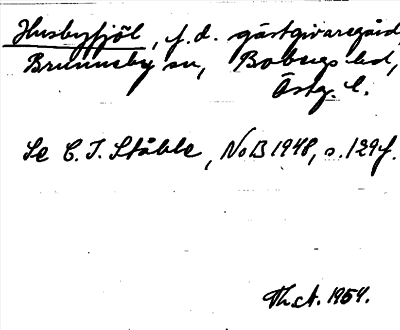 Husbyfjöl, f.d. gästgivaregård,
Brunneby sn, Bobergs hd,
Östg. l.
Se C. I. Ståhle, NoB 1948, s. 129 f.
Th. A. 1954.